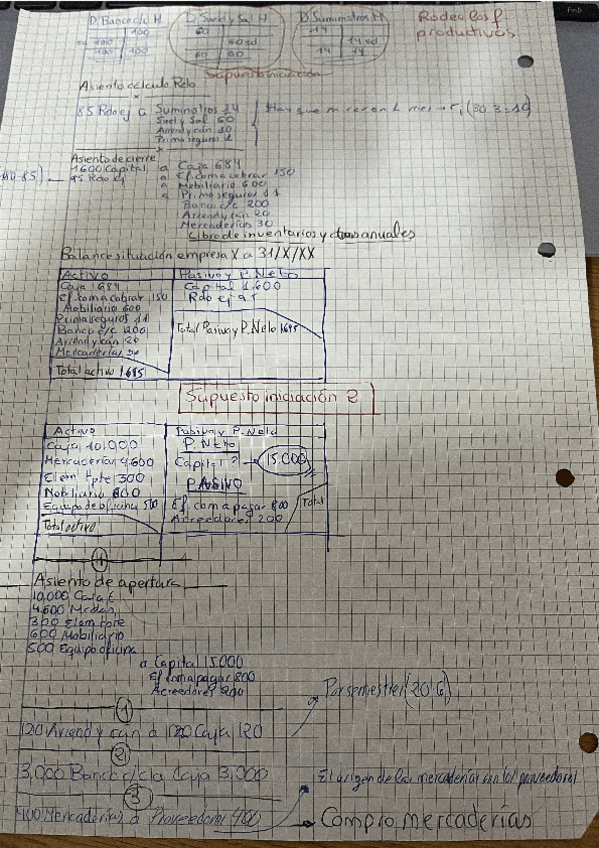 D. Banco c/c H
D. Sueld y Sal H
D. Suministros H
Rodeo los f
productivos
100
100
60
60 sd
60 60
14
14 sd
14 14
Supuesto iniciación
Asiento cálculo Rdo
85 Rdo ej a Suministros 14
Sueld y Sal 60
Arriend y can 10
Prima seguros 1
Asiento de cierre
1600 Capital a Caja 684
95 Rdo ej a Ef. com a cobrar 150
a Mobiliario 600
a Prima seguros 11
Banco c/c 200
Arriend y can 20
Mercaderías 30
Libro de inventarios y ctas anuales
Balance situación empresa X a 31/X/XX
Activo
Pasivo y P. Neto
Caja 1684
Capital 1.600
Ef. com a cobrar 150
Rdo ej 95
Mobiliario 600
Prima seguros 11
Banco c/c 200
Total Pasivo y P. Neto 1695
Arriend y can 20
Mercaderías 30
Total activo 1695
Supuesto iniciación 2
Activo
Pasivo y P. Neto
Caja 10.000
P. Neto
Mercaderías 4.600
Capital ? 15.000
Elem tpte 300
PASIVO
Mobiliario 600
Ef. com a pagar 800
Total
Equipo de oficina 500
Acreedores 200
Total activo
Asiento de apertura
10.000 Caja €
4.600 Mcdas,
300 Elem tpte
600 Mobiliario
500 Equipo oficina
a Capital 15.000
Ef. com a pagar 800
Acreedores 200
1
Por semestre (20·6)
120 Arriend y can a Caja 120
2
3.000 Banco c/c a Caja 3.000
El origen de las mercaderías son los proveedores
3
400 Mercaderías a Proveedores 400
Compro mercaderías